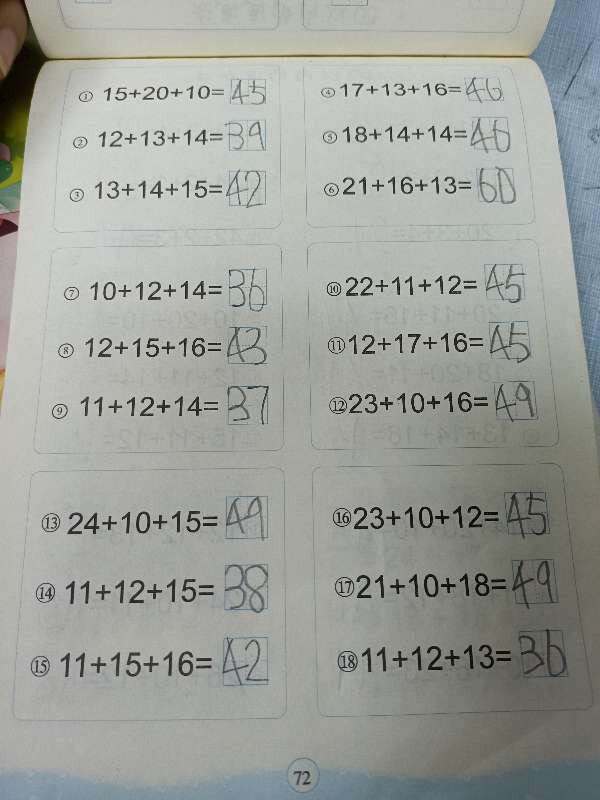 ① 15+20+10=45
② 12+13+14=39
③ 13+14+15=42
④ 17+13+16=46
⑤ 18+14+14=46
⑥ 21+16+13=60
⑦ 10+12+14=36
⑧ 12+15+16=43
⑨ 11+12+14=37
⑩ 22+11+12=45
⑪ 12+17+16=45
⑫ 23+10+16=49
⑬ 24+10+15=49
⑭ 11+12+15=38
⑮ 11+15+16=42
⑯ 23+10+12=45
⑰ 21+10+18=49
⑱ 11+12+13=36
72